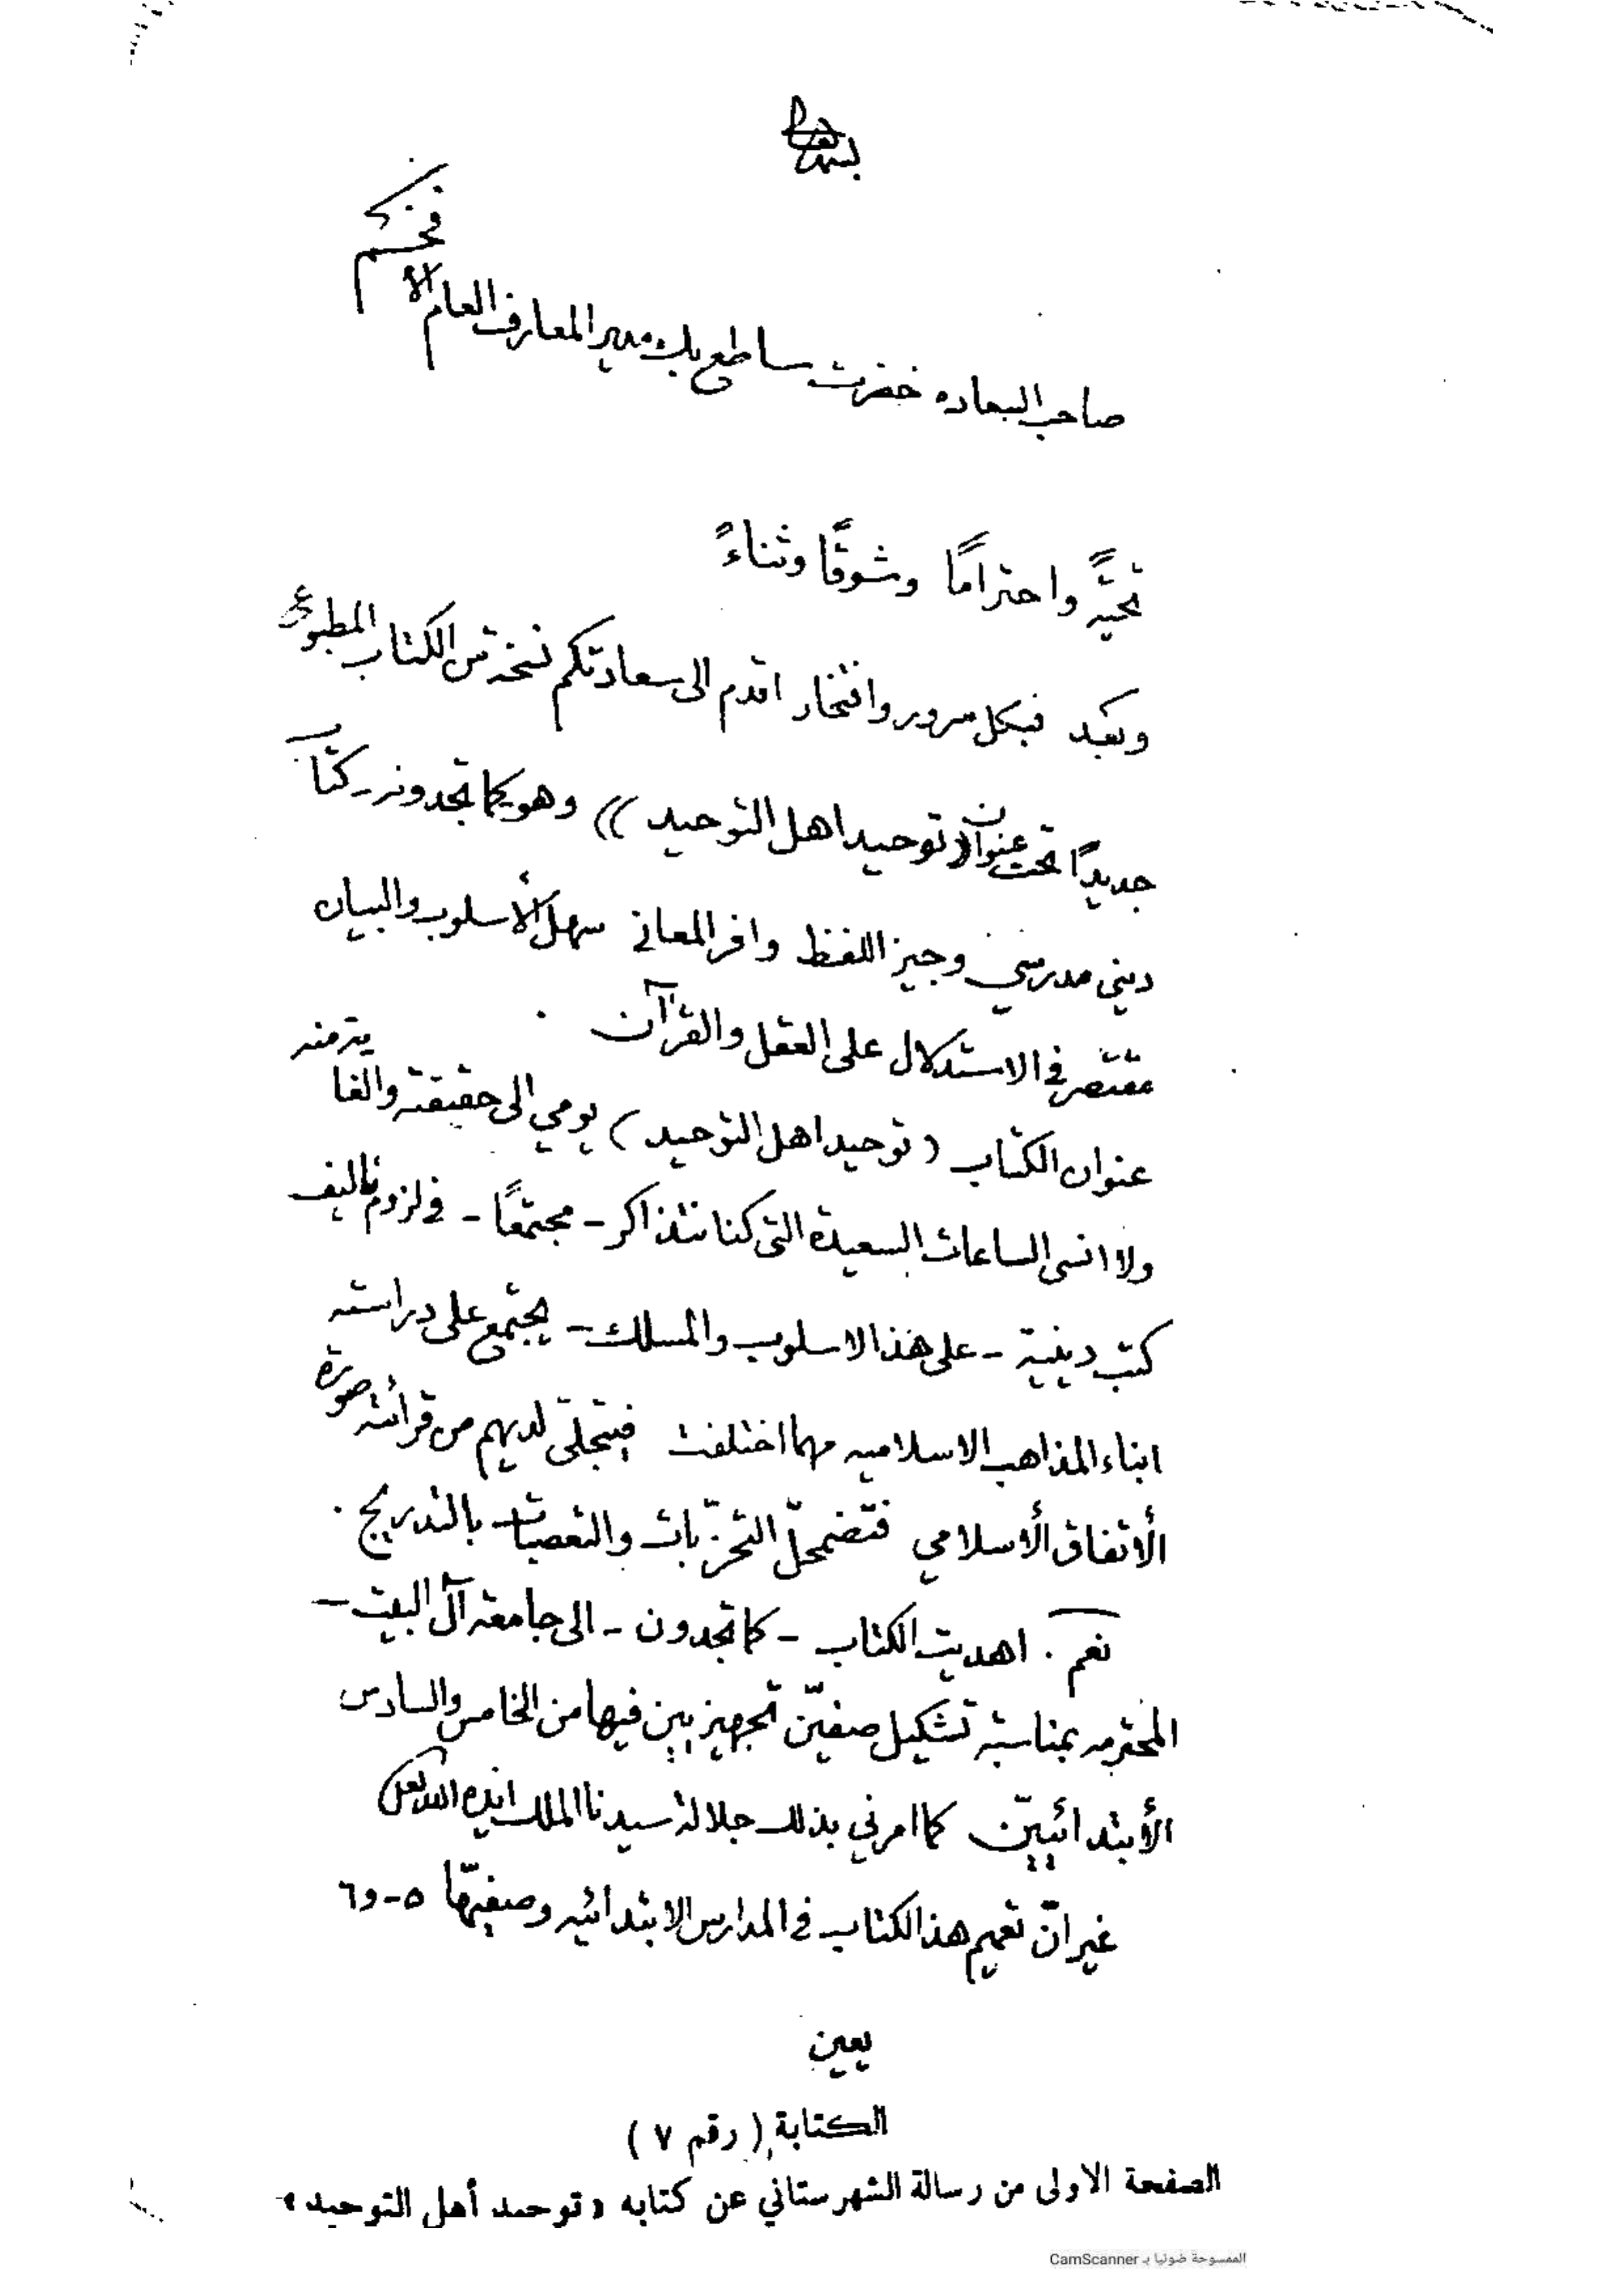 بسمه تعالى
صاحب السعاده حضرت ساطع بك مدير المعارف العام الأفخم
تحيةً واحترامًا وشوقًا وثناءً
وبعد فبكل سرور وافتخار اقدم الى سعادتكم نسخة من الكتاب المطبوع
جديدًا تحت عنوان (( توحيد اهل التوحيد )) وهو كما تجدونه - كتاب
ديني مدرسي وجيز اللفظ وافر المعاني سهل الأسلوب والبيان
مقتصر في الاستدلال على العقل والقرآن .
عنوان الكتاب ( توحيد اهل التوحيد ) يومي الى حقيقته والغاية منه
ولا انسى الساعات السعيدة التي كنا نتذاكر - مجتمعًا - في لزوم تأليف
كتب دينية - على هذا الاسلوب والمسلك - يجتمع على دراسته
ابناء المذاهب الاسلاميه مهما اختلفت فيتجلّى لديهم من قرائته صورة
الأتفاق الأسلامي فتضمحلّ التحزّبات والتعصبات بالتدريج .
نعم . اهديت الكتاب - كما تجدون - الى جامعة آل البيت -
المحترمه بمناسبة تشكيل صفيّن تجهيزيين فيها من الخامس والسادس
الأبتدائيّين كما امرني بذلك جلالة سيدنا الملك ايده الله تعالى
غير انّ تعميم هذا الكتاب في المدارس الابتدائيه وصفيّها ٥-و٦
يعين
الكتابة ( رقم ٧ )
الصفحة الاولى من رسالة الشهرستاني عن كتابه « توحيد أهل التوحيد »
الممسوحة ضوئيا بـ CamScanner